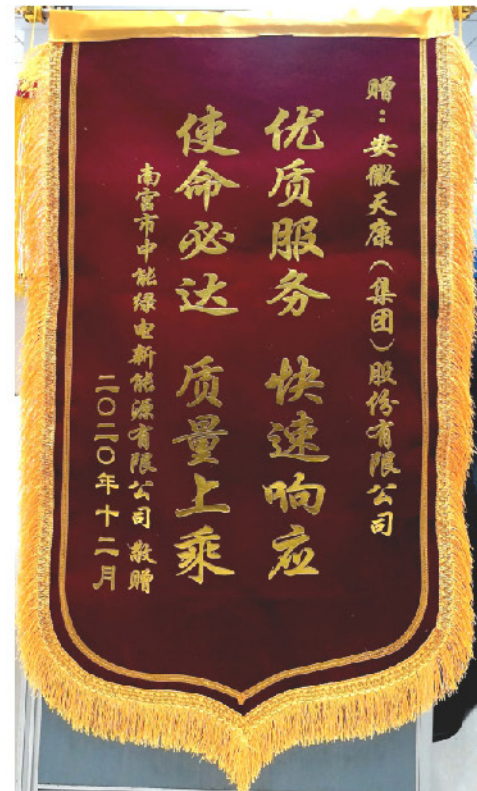 赠：安徽天康（集团）股份有限公司
优质服务 快速响应
使命必达 质量上乘
南宫市中能绿电新能源有限公司 敬赠
二〇二〇年十二月